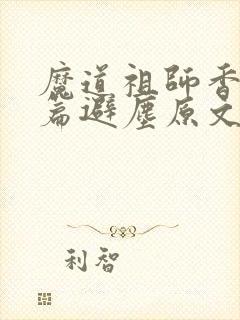 魔道祖師香
篇避塵原文
利智